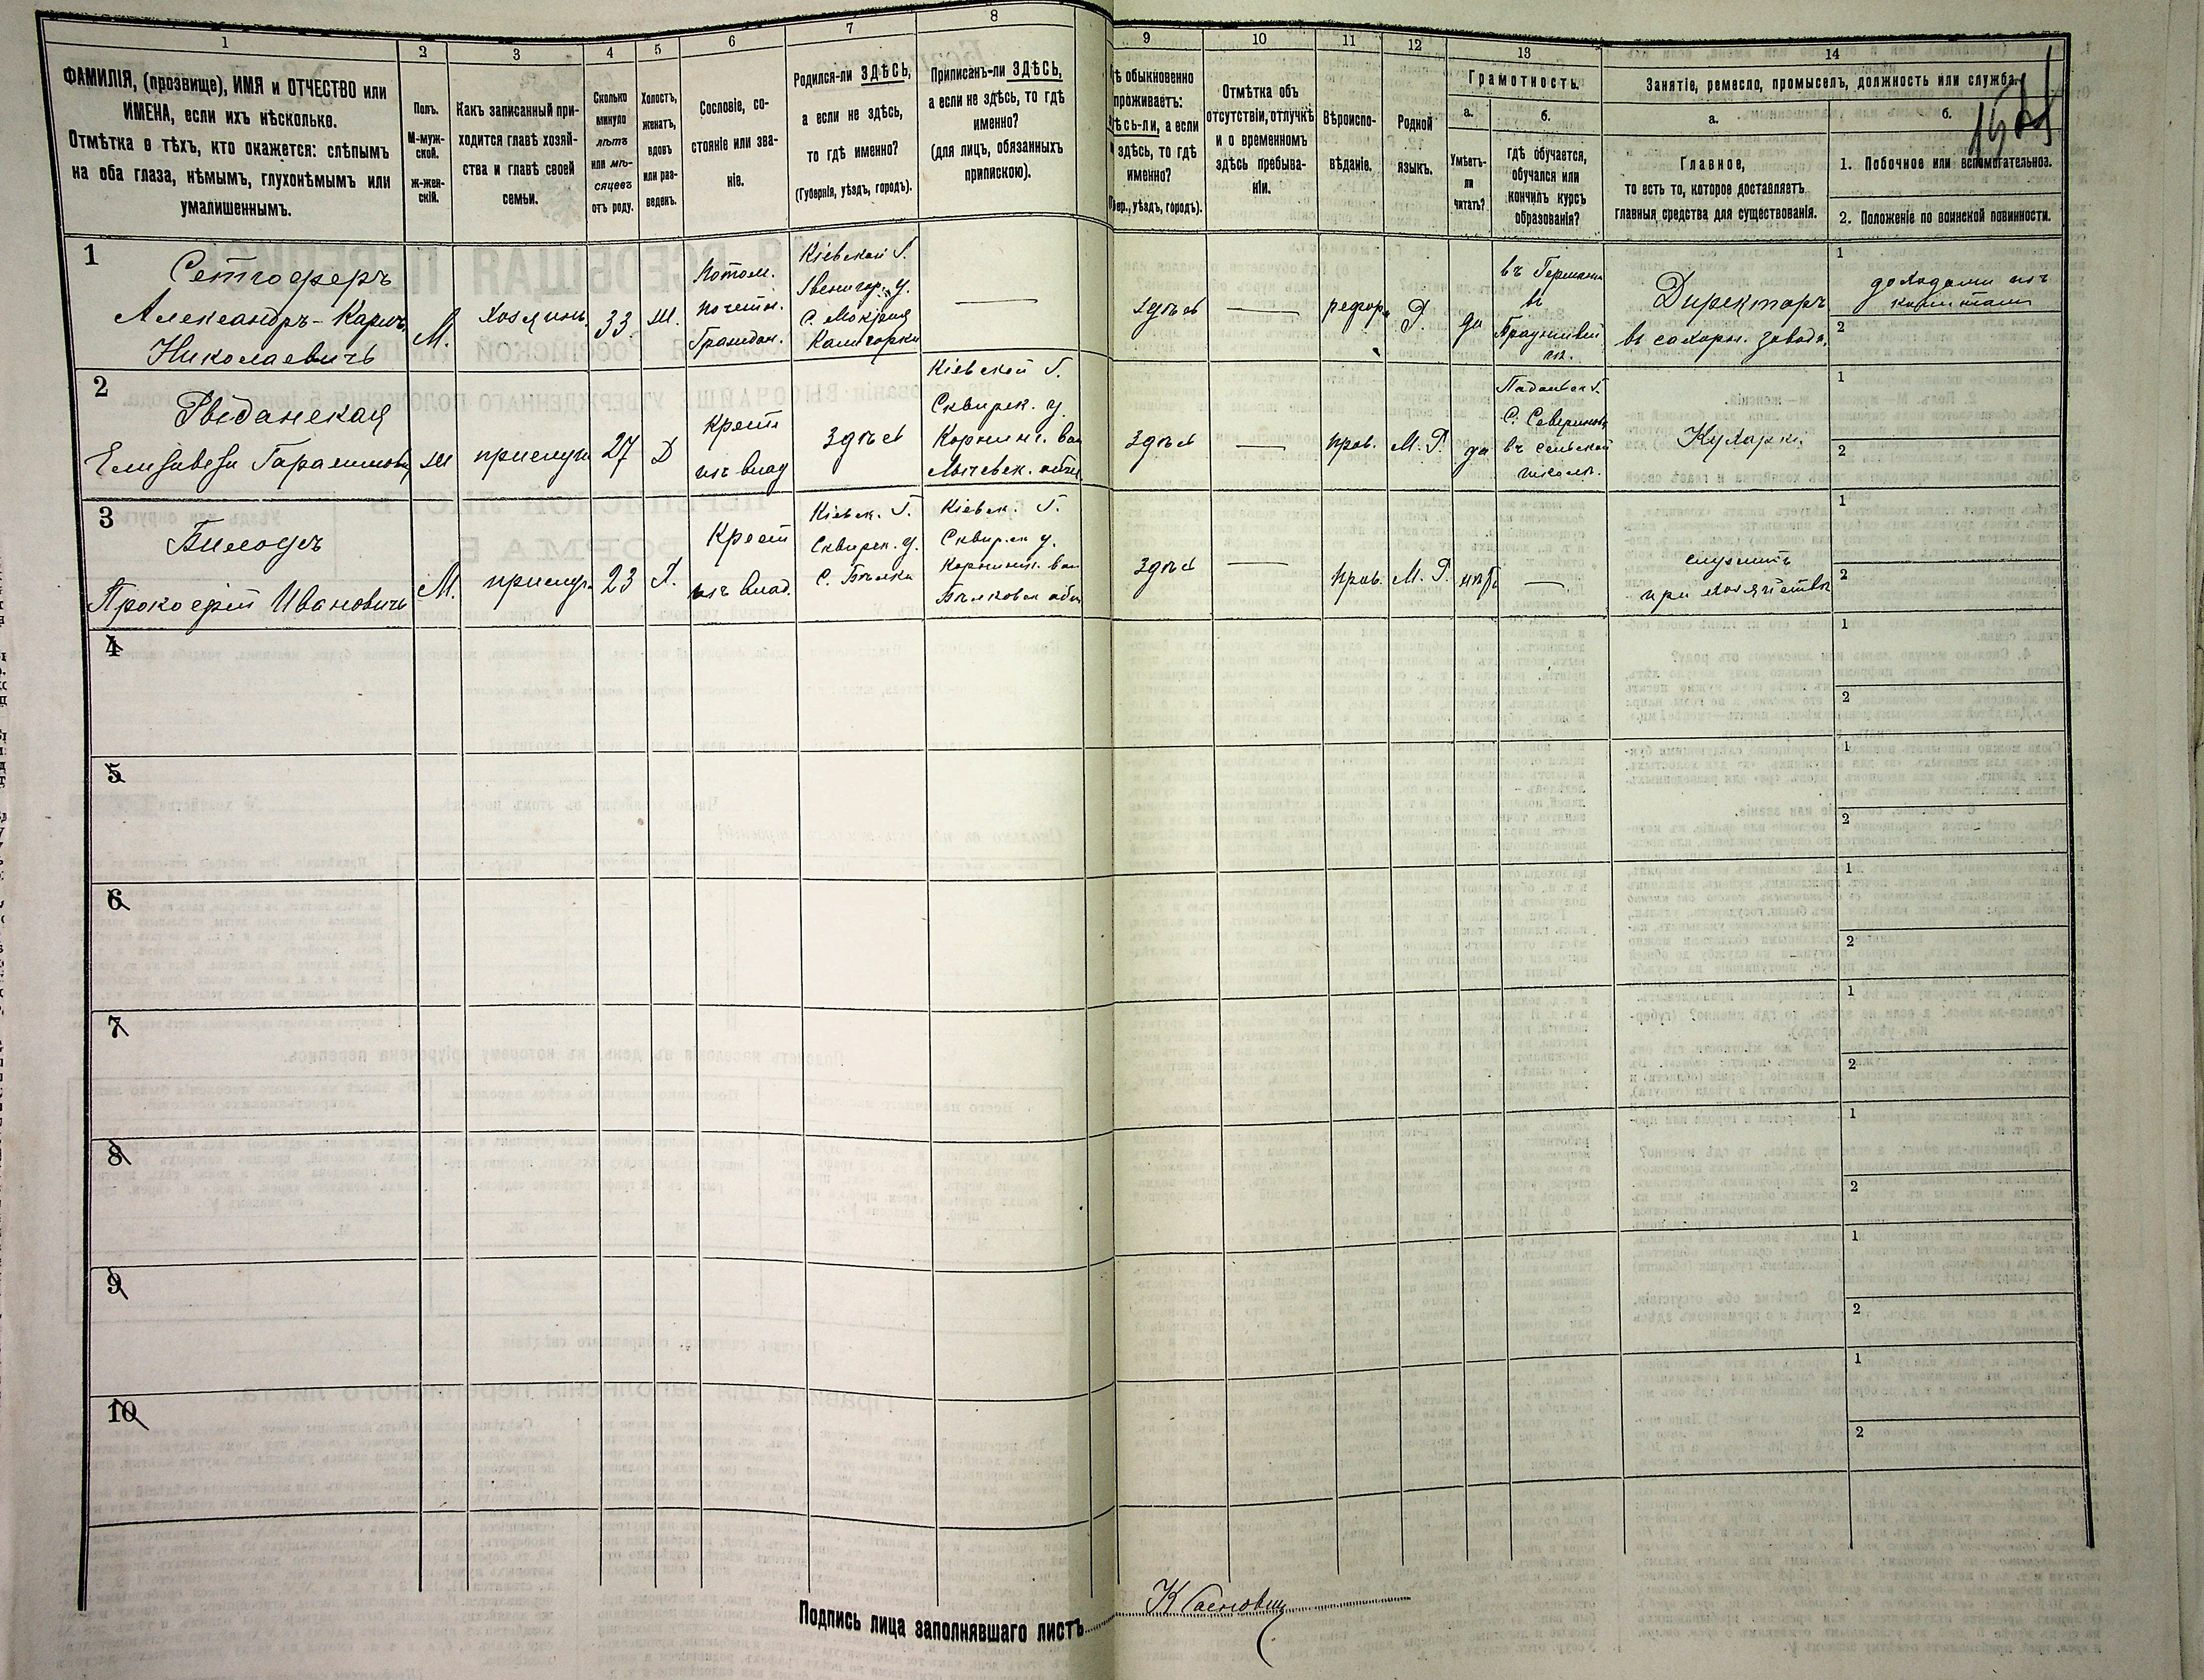 1 2 3 4 5 6 7 8 9 10 11 12 13 14
ФАМИЛІЯ, (прозвище), ИМЯ и ОТЧЕСТВО или
ИМЕНА, если ихъ нѣсколько.
Отмѣтка о тѣхъ, кто окажется: слѣпымъ
на оба глаза, нѣмымъ, глухонѣмымъ или
умалишеннымъ.
Полъ.
М-муж-
ской.
ж-жен-
скій.
Какъ записанный при-
ходится главѣ хозяй-
ства и главѣ своей
семьи.
Сколько
минуло
лѣтъ
или мѣ-
сяцевъ
отъ роду.
Холостъ,
женатъ,
вдовъ
или раз-
веденъ.
Сословіе, со-
стояніе или зва-
ніе.
Родился-ли ЗДѢСЬ,
а если не здѣсь,
то гдѣ именно?
(Губернія, уѣздъ, городъ).
Приписанъ-ли ЗДѢСЬ,
а если не здѣсь, то гдѣ
именно?
(для лицъ, обязанныхъ
припискою).
ѣ обыкновенно
проживаетъ:
ѣсь-ли, а если
здѣсь, то гдѣ
именно?
бер., уѣздъ, городъ).
Отмѣтка объ
отсутствіи, отлучкѣ
и о временномъ
здѣсь пребыва-
ніи.
Вѣроиспо-
вѣданіе.
Родной
языкъ.
Грамотность.
а.
Умѣетъ-
ли
читать?
б.
гдѣ обучается,
обучался или
кончилъ курсъ
образованія?
Занятіе, ремесло, промыселъ, должность или служба.
а.
Главное,
то есть то, которое доставляетъ
главныя средства для существованія.
б.
1. Побочное или вспомогательное.
2. Положеніе по воинской повинности.
1
Александръ-Карлъ
Николаевичъ
М.
Хозяинъ
33
Потом.
почетн.
Граждан.
Кіевской Г.
Звенигор. у.
С. Мокрая
Калигорка
здѣсь
рефор.
да
въ Германіи
въ
Директоръ
въ сахарн. завод.
1
2
2
Елизавета
прислуга
27
Д
крест
изъ влад
Здѣсь
Кіевской Г.
Сквирск. у.
Корнинс. вол
здѣсь
прав.
М. Р.
да
въ сельской
школѣ.
Кухарка
1
2
3
Прокофій Ивановичъ
М.
прислуг.
23
Х.
Крест
изъ влад.
Кіевск. Г.
Сквирск. у.
С. Бѣлки
Кіевск. Г.
Сквирск у.
Корнинс. вол
Бѣлковск общ
здѣсь
прав.
М. Р.
нѣтъ
служитъ
при хозяйствѣ
1
2
4
1
2
5
1
2
6
1
2
7
1
2
8
1
2
9
1
2
10
1
2
Подпись лица заполнявшаго листъ